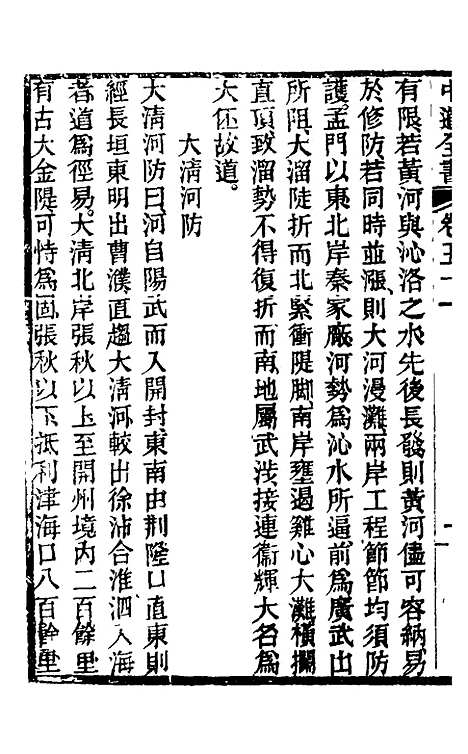 中道全書 卷五十一
有限若黃河與沁洛之水先後長發則黃河儘可容納易
於修防若同時並漲則大河漫灘兩岸工程節節均須防
護孟門以東北岸秦家廠河勢爲沁水所逼前爲廣武山
所阻大溜陡折而北緊衝隄脚南岸壅遏雞心大灘橫攔
直頂致溜勢不得復折而南地屬武涉接連衞輝大名爲
大伾故道。
大淸河防
大淸河防曰河自陽武而入開封東南由荆隆口直東則
經長垣東明出曹濮直趨大淸河較出徐沛合淮泗入海
者道爲徑易。大淸北岸張秋以上至開州境內二百餘里
有古大金隄可恃爲固張秋以下抵利津海口八百餘里